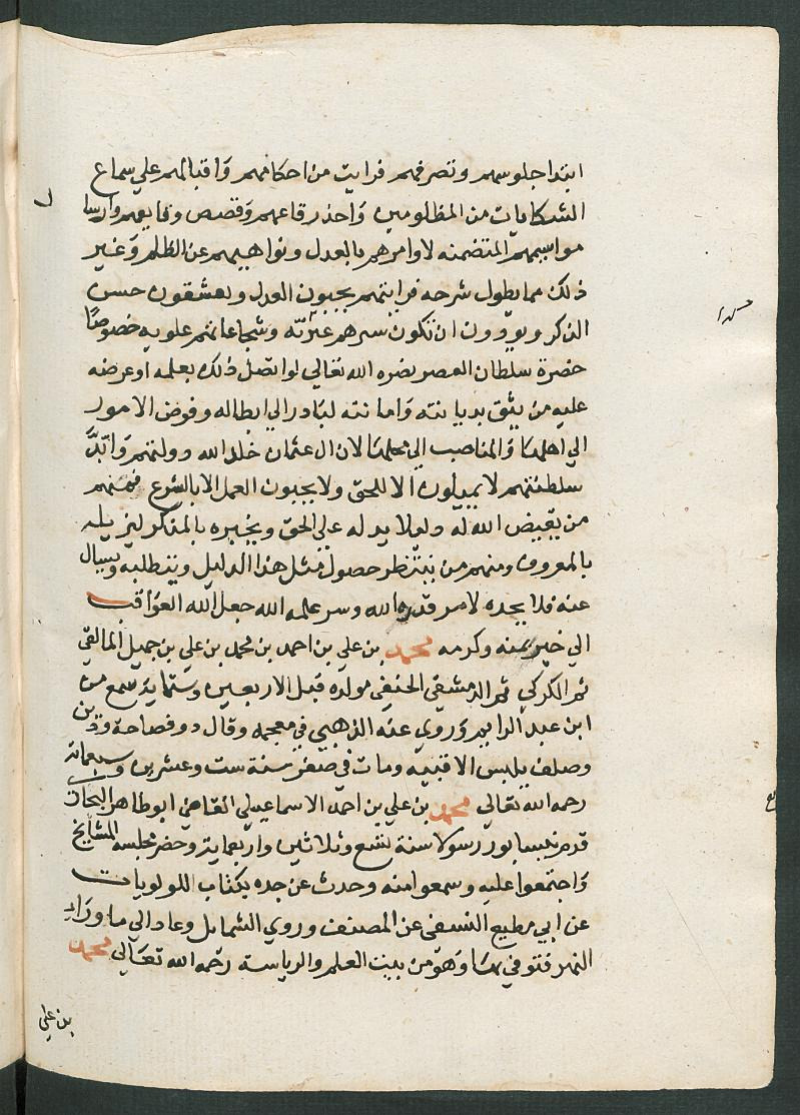 ابتدا جلوسهم وتصرفهم فرايت من احكامهم واقبالهم علي سماع
الشكايات من المظلومين واخذ رقاعهم وقصص وقايعهم وارسا
مراسيمهم المتضمنه لاوامرهم بالعدل ونواهيهم عن الظلم وغير
ذلك مما يطول شرحه فرايتهم يحبون العدل ويعشقون حسن
الذكر ويودون ان تكون سيرهم عمريّه وشجاعاتهم علويه خصوصًا
حضرة سلطان العصر نصره الله تعالي لو اتصل ذلك بعلمه او عرضه
عليه من يثق بديانته وامانته لبادر الي ابطاله وفوض الامور
الي اهلها والمناصب الي محلها لان ال عثمان خلد الله دولتهم وابّد
سلطنتهم لا يميلون الا للحق ولا يحبون العمل الا بالشرع فمنهم
من يقيض الله له دليلا يدله علي الحق ويخبره بالمنكر ليزيله
بالمعروف ومنهم من ينتظر حصول مثل هذا الدليل ويتطلبه ويسال
عنه فلا يجده لامر قدره الله وسر علمه الله جعل الله العواقب
الي خير بمنه وكرمه محمد بن علي بن احمد بن محمد بن علي بن جميل المالقي
ثم الكركي ثم الدمشقي الحنفي مولده قبل الاربعين وستماية سمع من
ابن عبد الدايم وروي عنه الذهبي في معجمه وقال ذو فصاحة وتدين
وصلف يلبس الاقبيه ومات في صفر سنة ست وعشرين وسبعماية
رحمه الله تعالي محمد بن علي بن احمد الاسماعيلي القاضي ابو طاهر البخاري
قدم نيسابور رسولا سنة تسع وثلاثين واربعماية وحضر مجلسه المشايخ
واجتمعوا عليه وسمعوا منه وحدث عن جده بكتاب اللولويات
عن ابي مطيع النسفي عن المصنف وروي الشمايل وعاد الي ما وراء
النهر فتوفي بها وهو من بيت العلم والرياسة رحمه الله تعالي محمد
بن علي